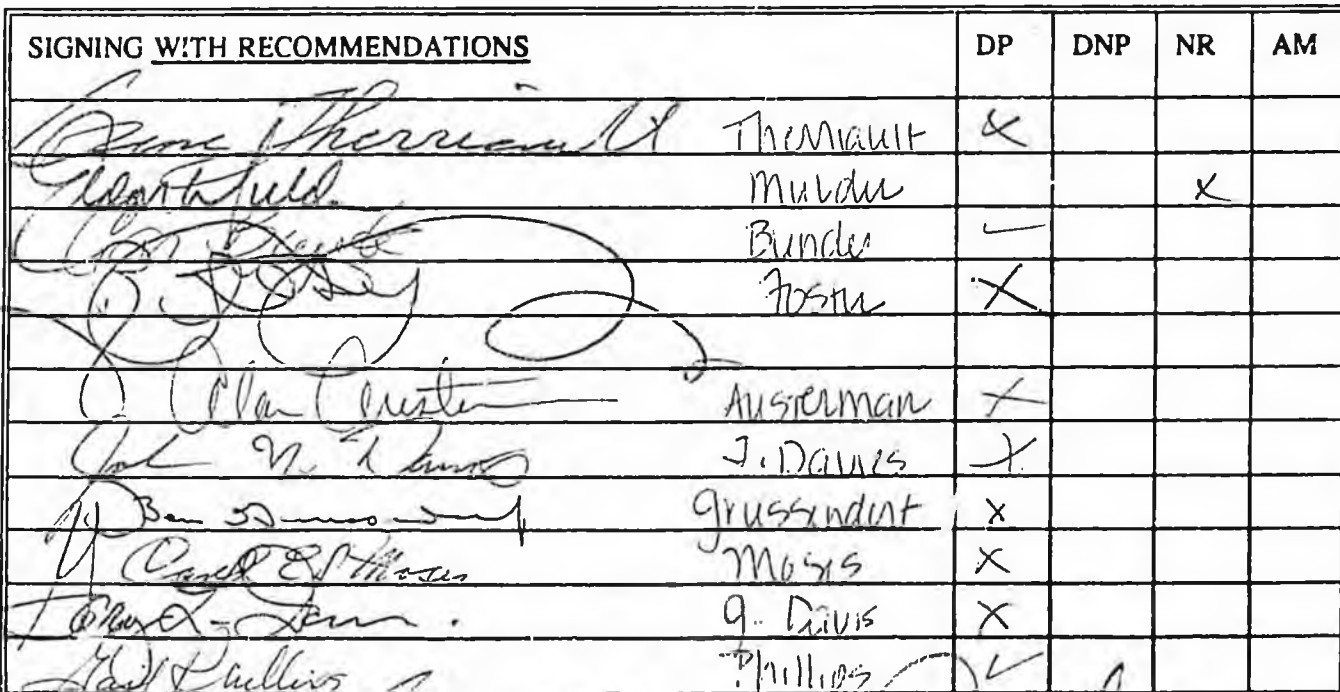 SIGNING WITH RECOMMENDATIONS DP DNP NR AM
Gene Therriault Therriault X
Mulder X
Bunde ✓
Foster X
Alan Austerman Austerman X
John N. Davies J. Davies X
Ben Grussendorf Grussendorf X
Carl E. Moses Moses X
G. Davis X
Gail Phillips Phillips ✓